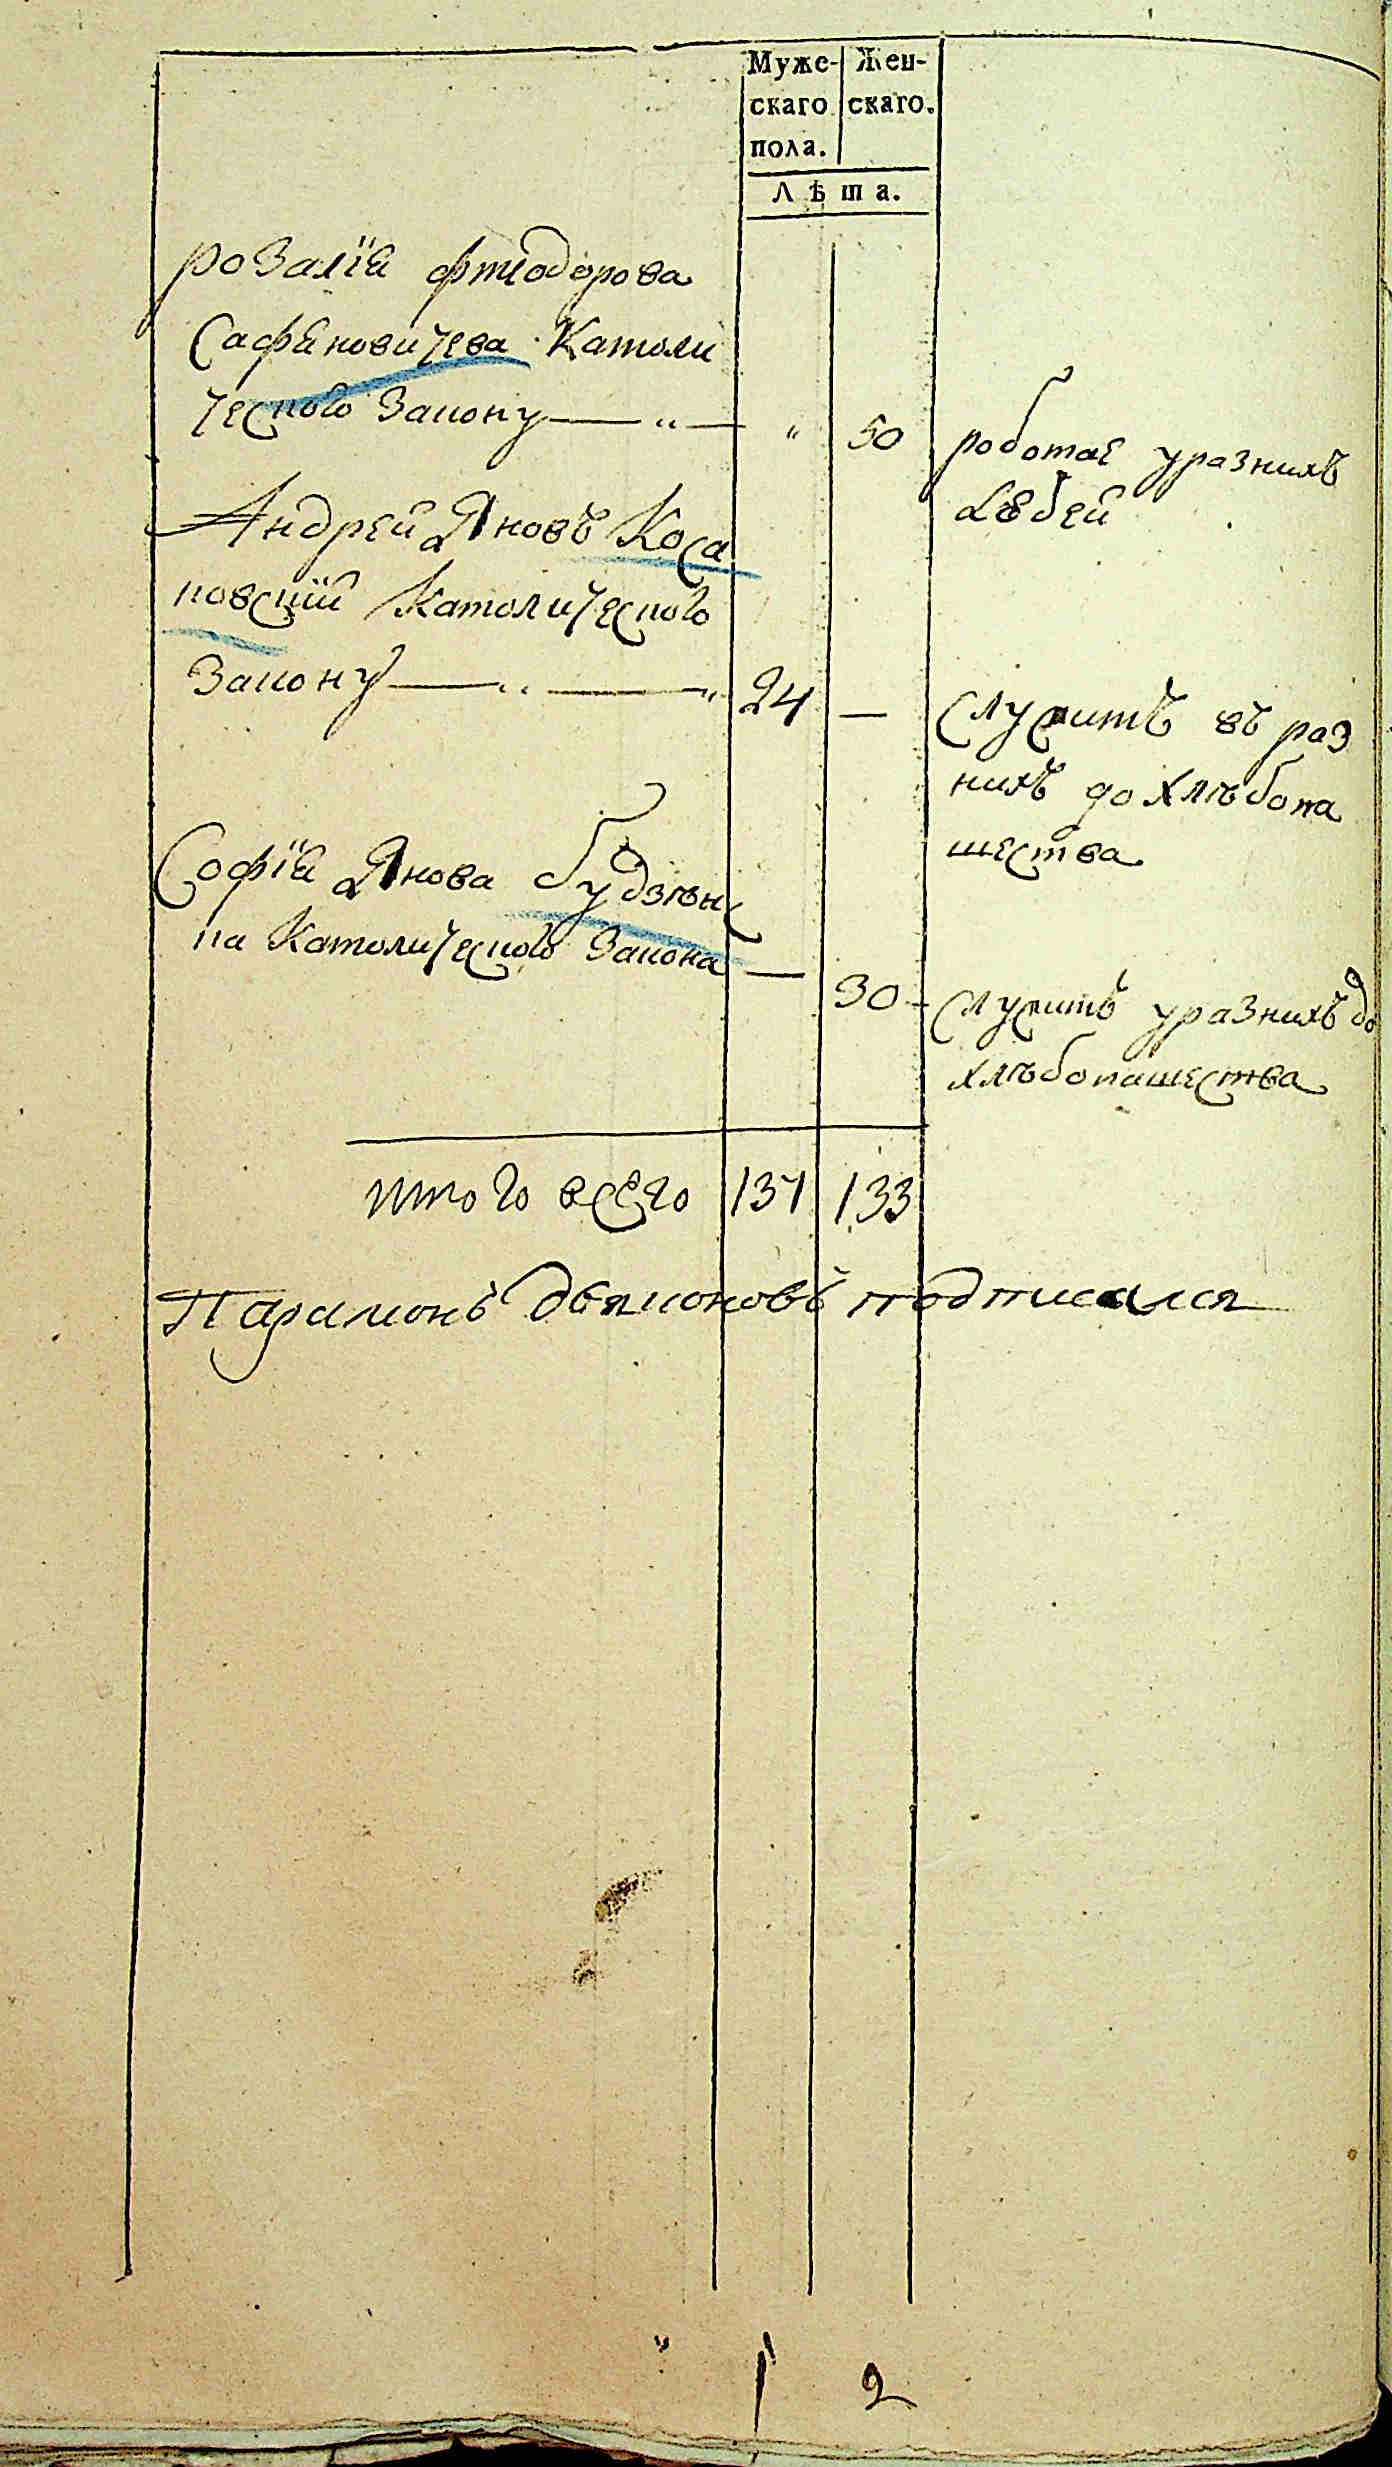 Муже- Жен-
скаго скаго.
пола.
Лѣта.
Розалія Фтеодорова
Сафяновичева Католи
ческого Закону — „ — „ 50 роботае уразнихъ
людей
Андрей Яновъ Коса
ковскій Католического
Закону — „ — „ 24 — служитъ въ раз
нихъ до хлѣбопа
шества
Софія Янова Будзѣнс
ка Католического Закона — 30 служитъ уразнихъ до
хлѣбопашества
Итого всего 137 133
Парамонъ Дьяконовъ подписался
„ 1 2